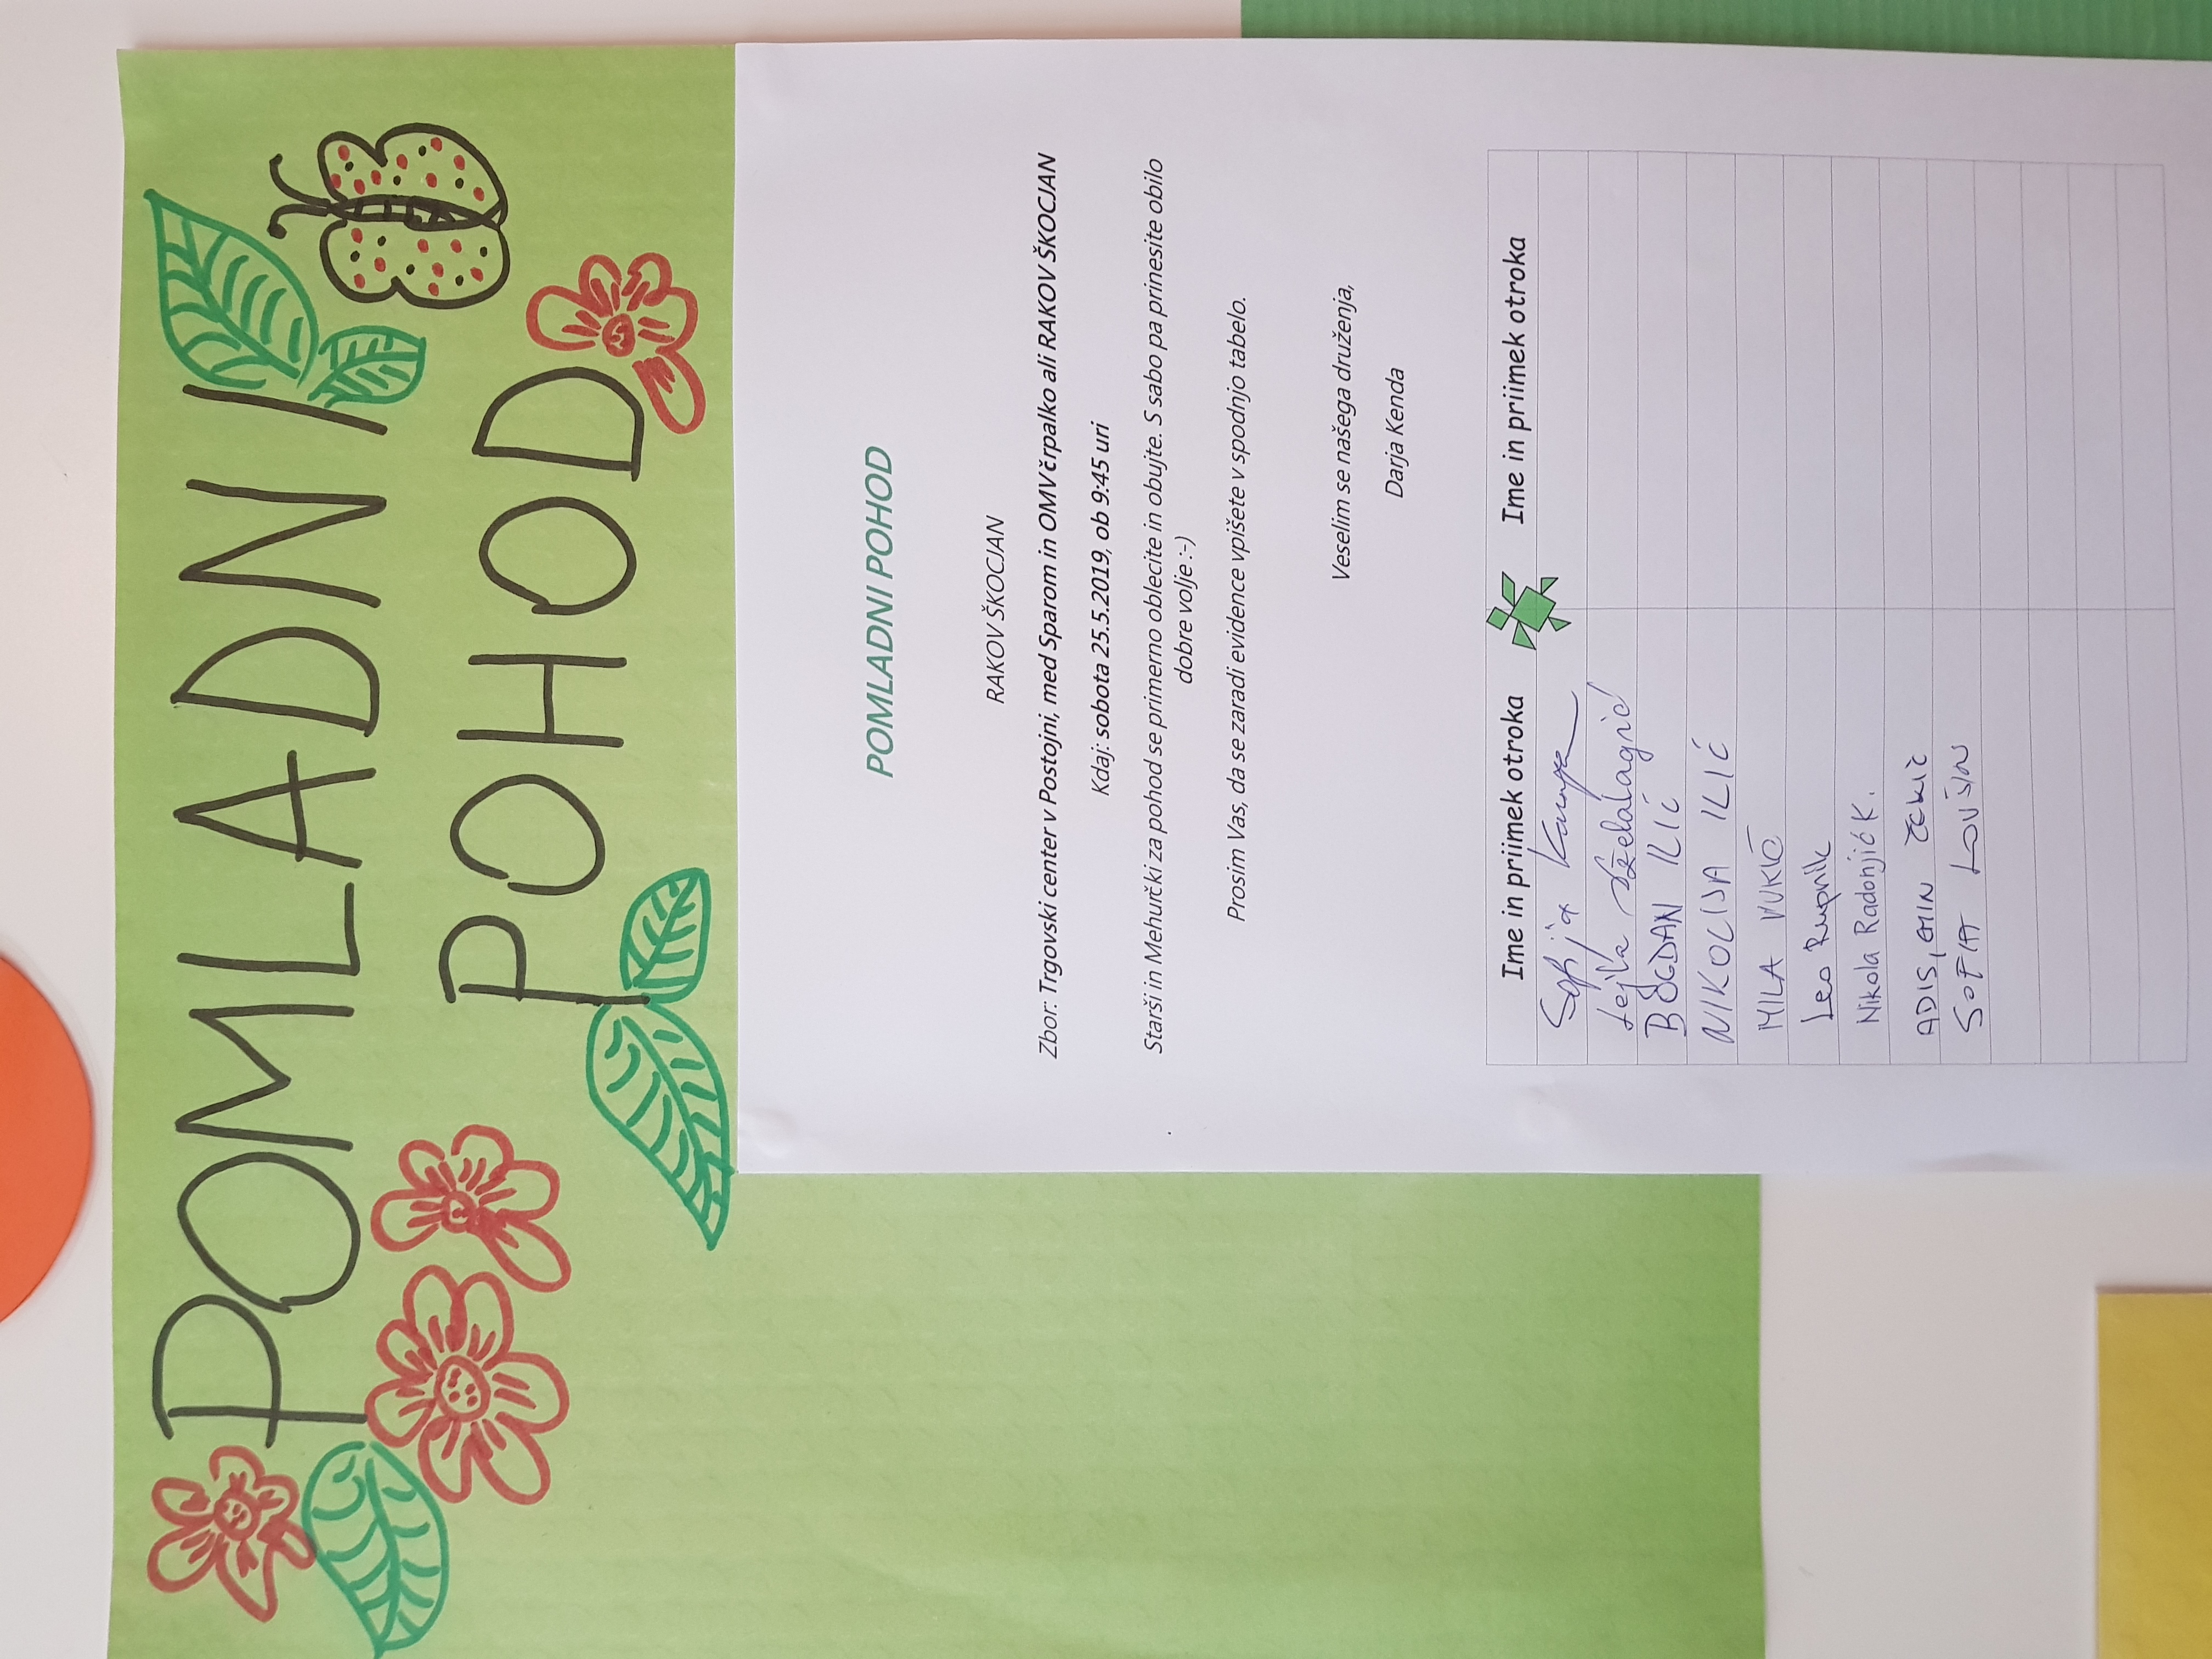 POMLADNI
POHOD
POMLADNI POHOD
RAKOV ŠKOCJAN
Zbor: Trgovski center v Postojni, med Sparom in OMV črpalko ali RAKOV ŠKOCJAN
Kdaj: sobota 25.5.2019, ob 9:45 uri
Starši in Mehurčki za pohod se primerno oblecite in obujte. S sabo pa prinesite obilo
dobre volje :-)
Prosim Vas, da se zaradi evidence vpišete v spodnjo tabelo.
Veselim se našega druženja,
Darja Kenda
Ime in priimek otroka Ime in priimek otroka
Lejla Dželalagić
BOGDAN ILIĆ
NIKOLIJA ILIĆ
MILA VUKIĆ
Leo Rupnik
Nikola Radonjić K.
ADIS, EMIN
SOFIA LOVŠIN